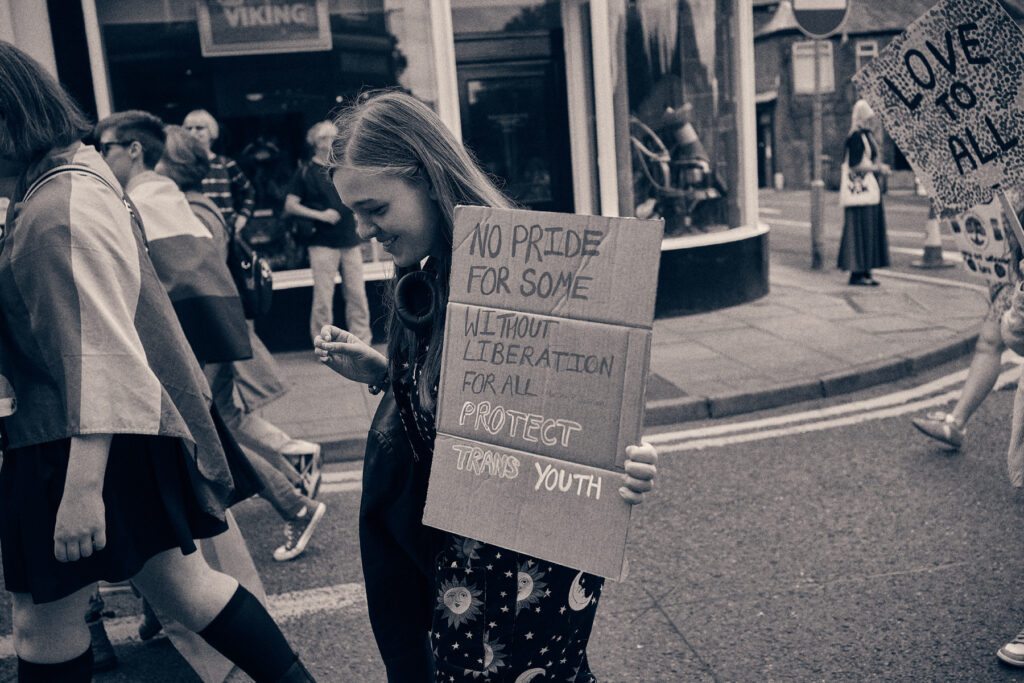 VIKING
NO PRIDE
FOR SOME
WITHOUT
LIBERATION
FOR ALL
PROTECT
TRANS YOUTH
LOVE
TO
ALL